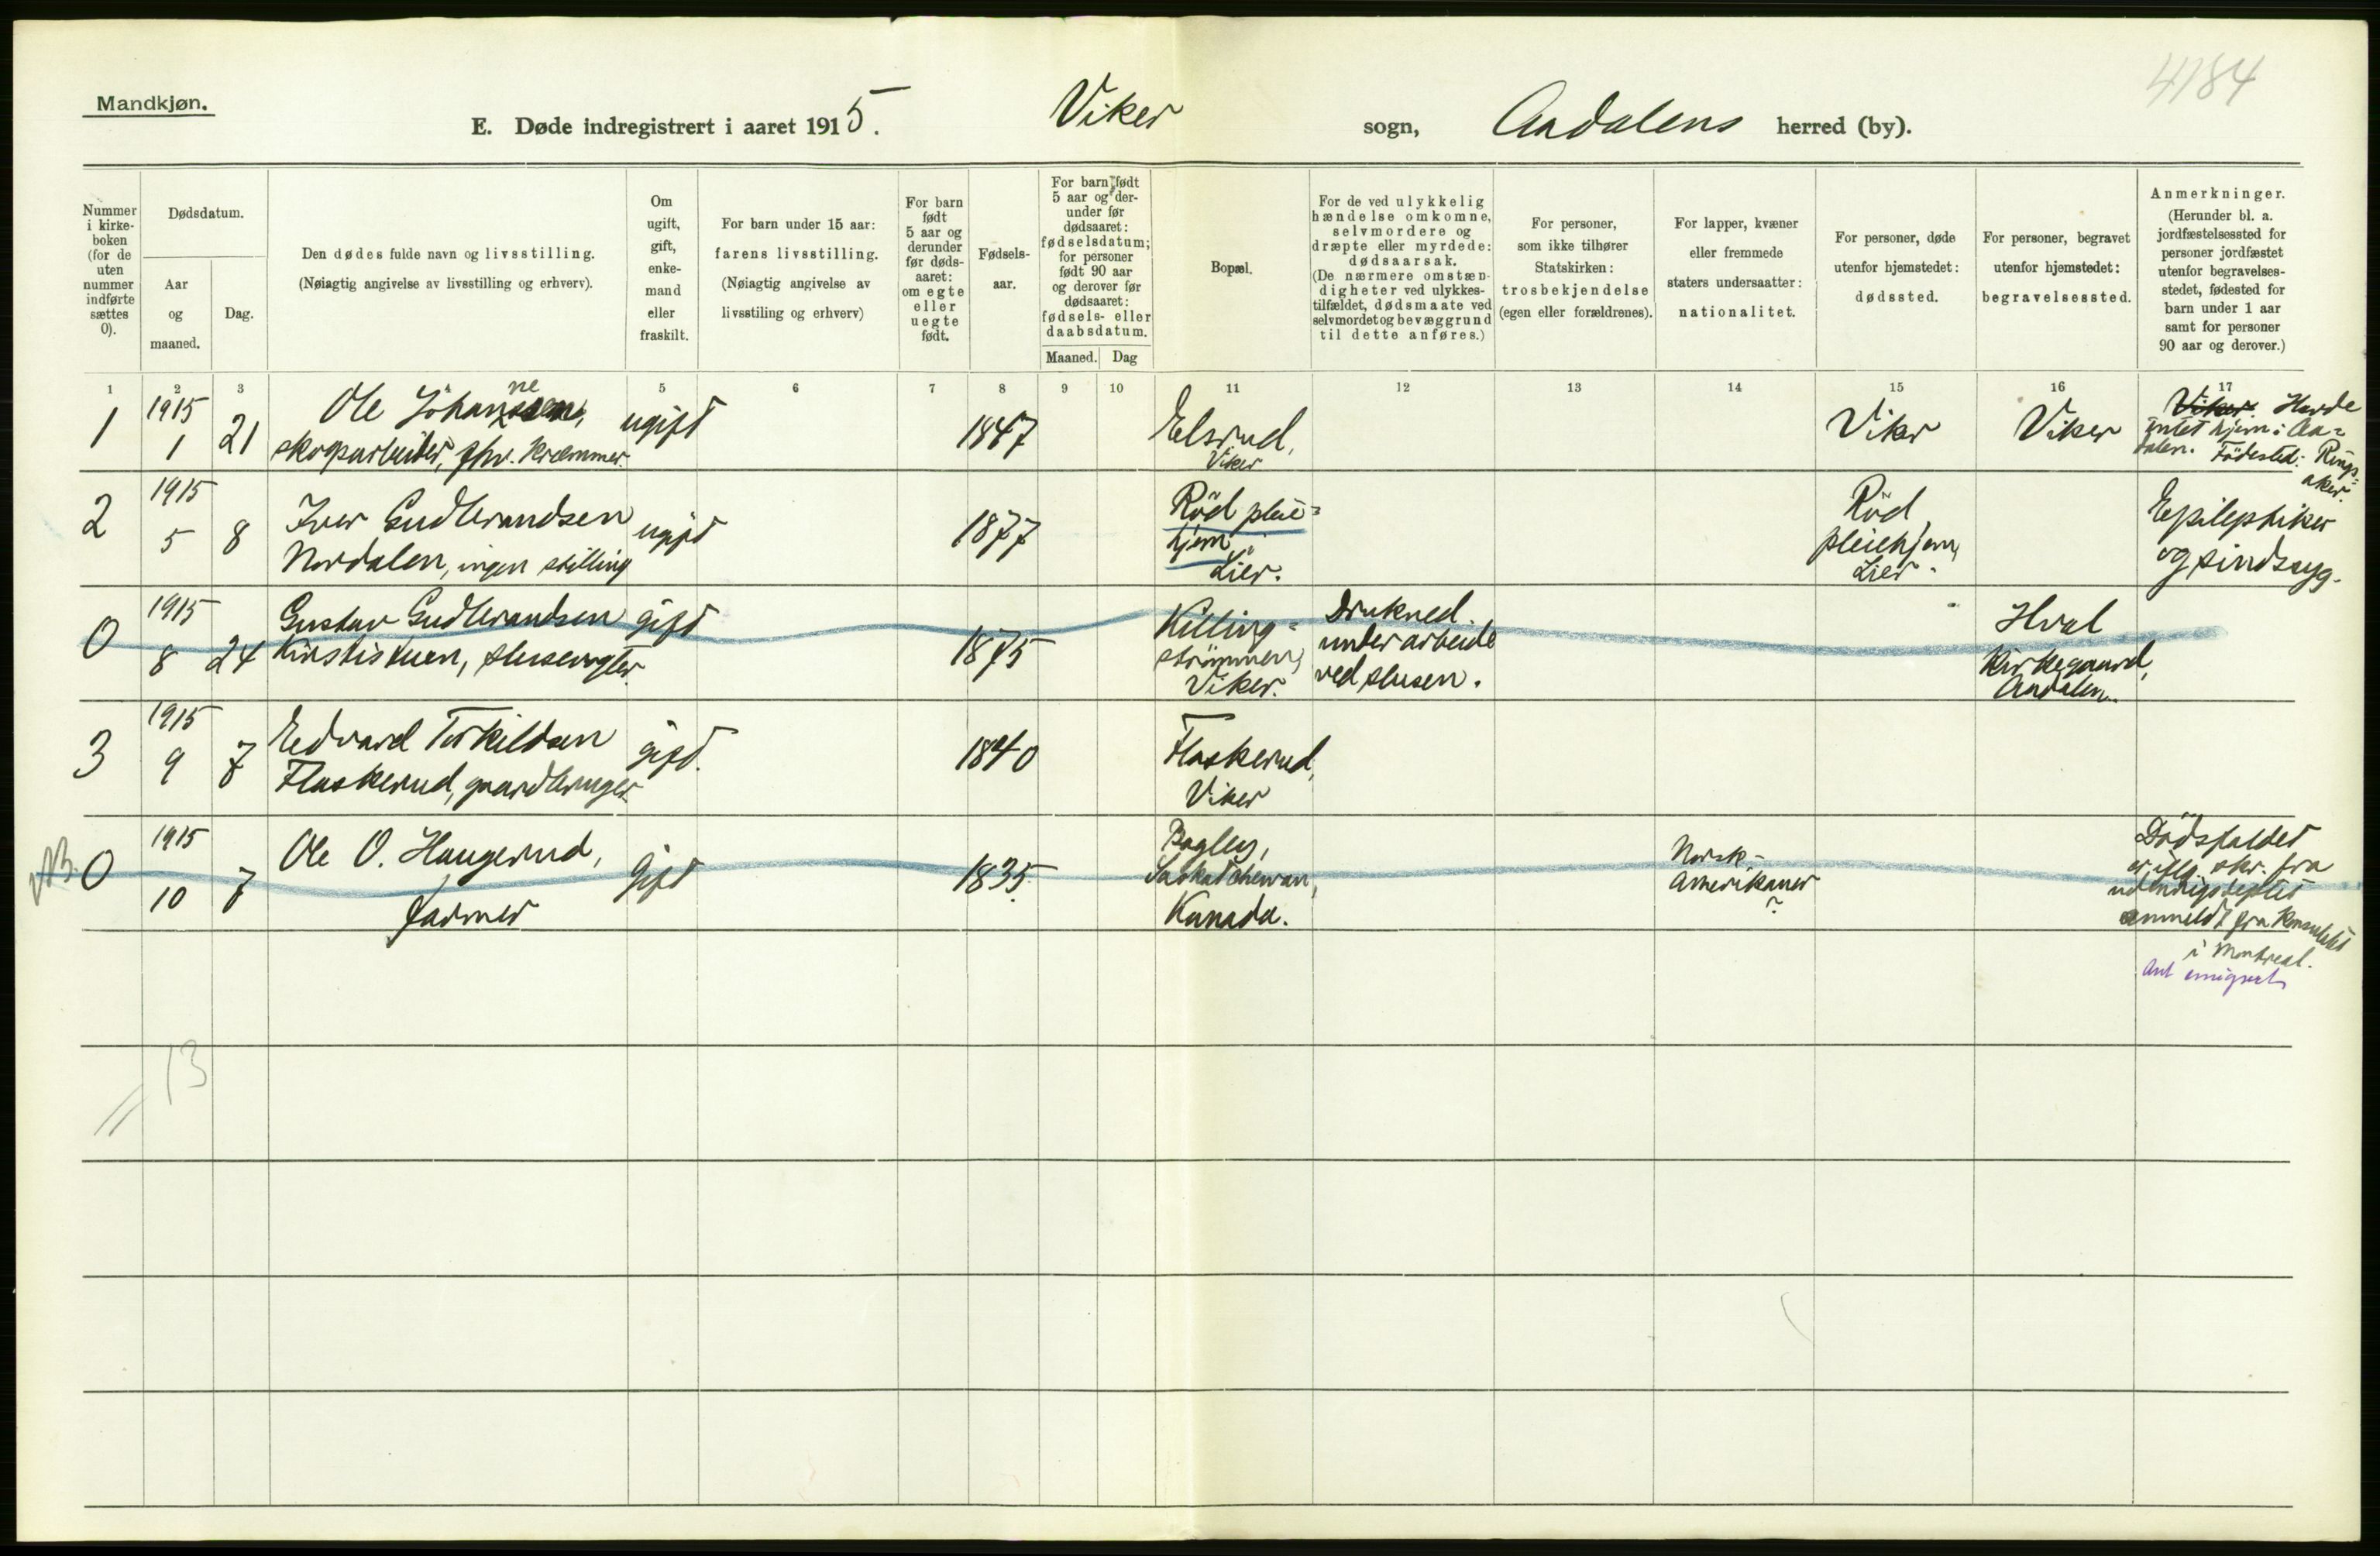 4184
Mandkjøn.
E. Døde indregistrert i aaret 1915. Viker sogn, Aadalens herred (by).
Nummer i kirke- boken (for de uten nummer indførte sættes 0).
Dødsdatum.
Aar og maaned.
Dag.
Den dødes fulde navn og livsstilling.
(Nøiagtig angivelse av livsstilling og erhverv).
Om ugift, gift, enke- mand eller fraskilt.
For barn under 15 aar:
farens livsstilling.
(Nøiagtig angivelse av
livsstiling og erhverv)
For barn født 5 aar og derunder før døds- aaret: om egte eller uegte født.
Fødsels- aar.
For barn født 5 aar og der- under før dødsaaret: fødselsdatum; for personer født 90 aar og derover før dødsaaret: fødsels- eller daabsdatum.
Maaned. Dag
Bopæl.
For de ved ulykkelig hændelse omkomne, selvmordere og dræpte eller myrdede: dødsaarsak.
(De nærmere omstæn- digheter ved ulykkes- tilfældet, dødsmaate ved selvmordet og bevæggrund til dette anføres.)
For personer, som ikke tilhører Statskirken: trosbekjendelse (egen eller forældrenes).
For lapper, kvæner eller fremmede staters undersaatter: nationalitet.
For personer, døde utenfor hjemstedet: dødssted.
For personer, begravet utenfor hjemstedet: begravelsessted.
Anmerkninger.
(Herunder bl. a. jordfæstelsessted for personer jordfæstet utenfor begravelses- stedet, fødested for barn under 1 aar samt for personer 90 aar og derover.)
1 2 3 5 6 7 8 9 10 11 12 13 14 15 16 17
1 1915 1 21 Ole Johannesen, ugift 1847 Elsrud, Viker Viker Viker Viker. Havde
skogsarbeider, fhv. Kræmmer. intet hjem i Aa=
dalen. Fødested: Rings=
aker.
2 1915 5 8 Iver Gudbrandsen ugift 1877 Röd pleie= hjem, Lier. Röd pleiehjem, Lier. Epileptiker
Nordalen, ingen stilling og sindssyg.
0 1915 8 24 Gustav Gudbrandsen gift 1875 Killing= strömmen, Viker. Drukned. under arbeide ved slusen. Hval Kirkegaard, Aadalen.
Kirstistuen, slusevogter.
3 1915 9 7 Edvard Torkildsen gift. 1840 Flaskerud, Viker
Flaskerud, gaardbruger.
NB. 0 1915 10 7 Ole O. Haugerud, gift 1835. Bagley, Saskatchewan, Kanada. Norsk- Amerikaner ? Dödsfaldet
farmer er iflg. skr. fra
anmeldt fra Konsulatet
i Montreal.
Ant emigrert
13